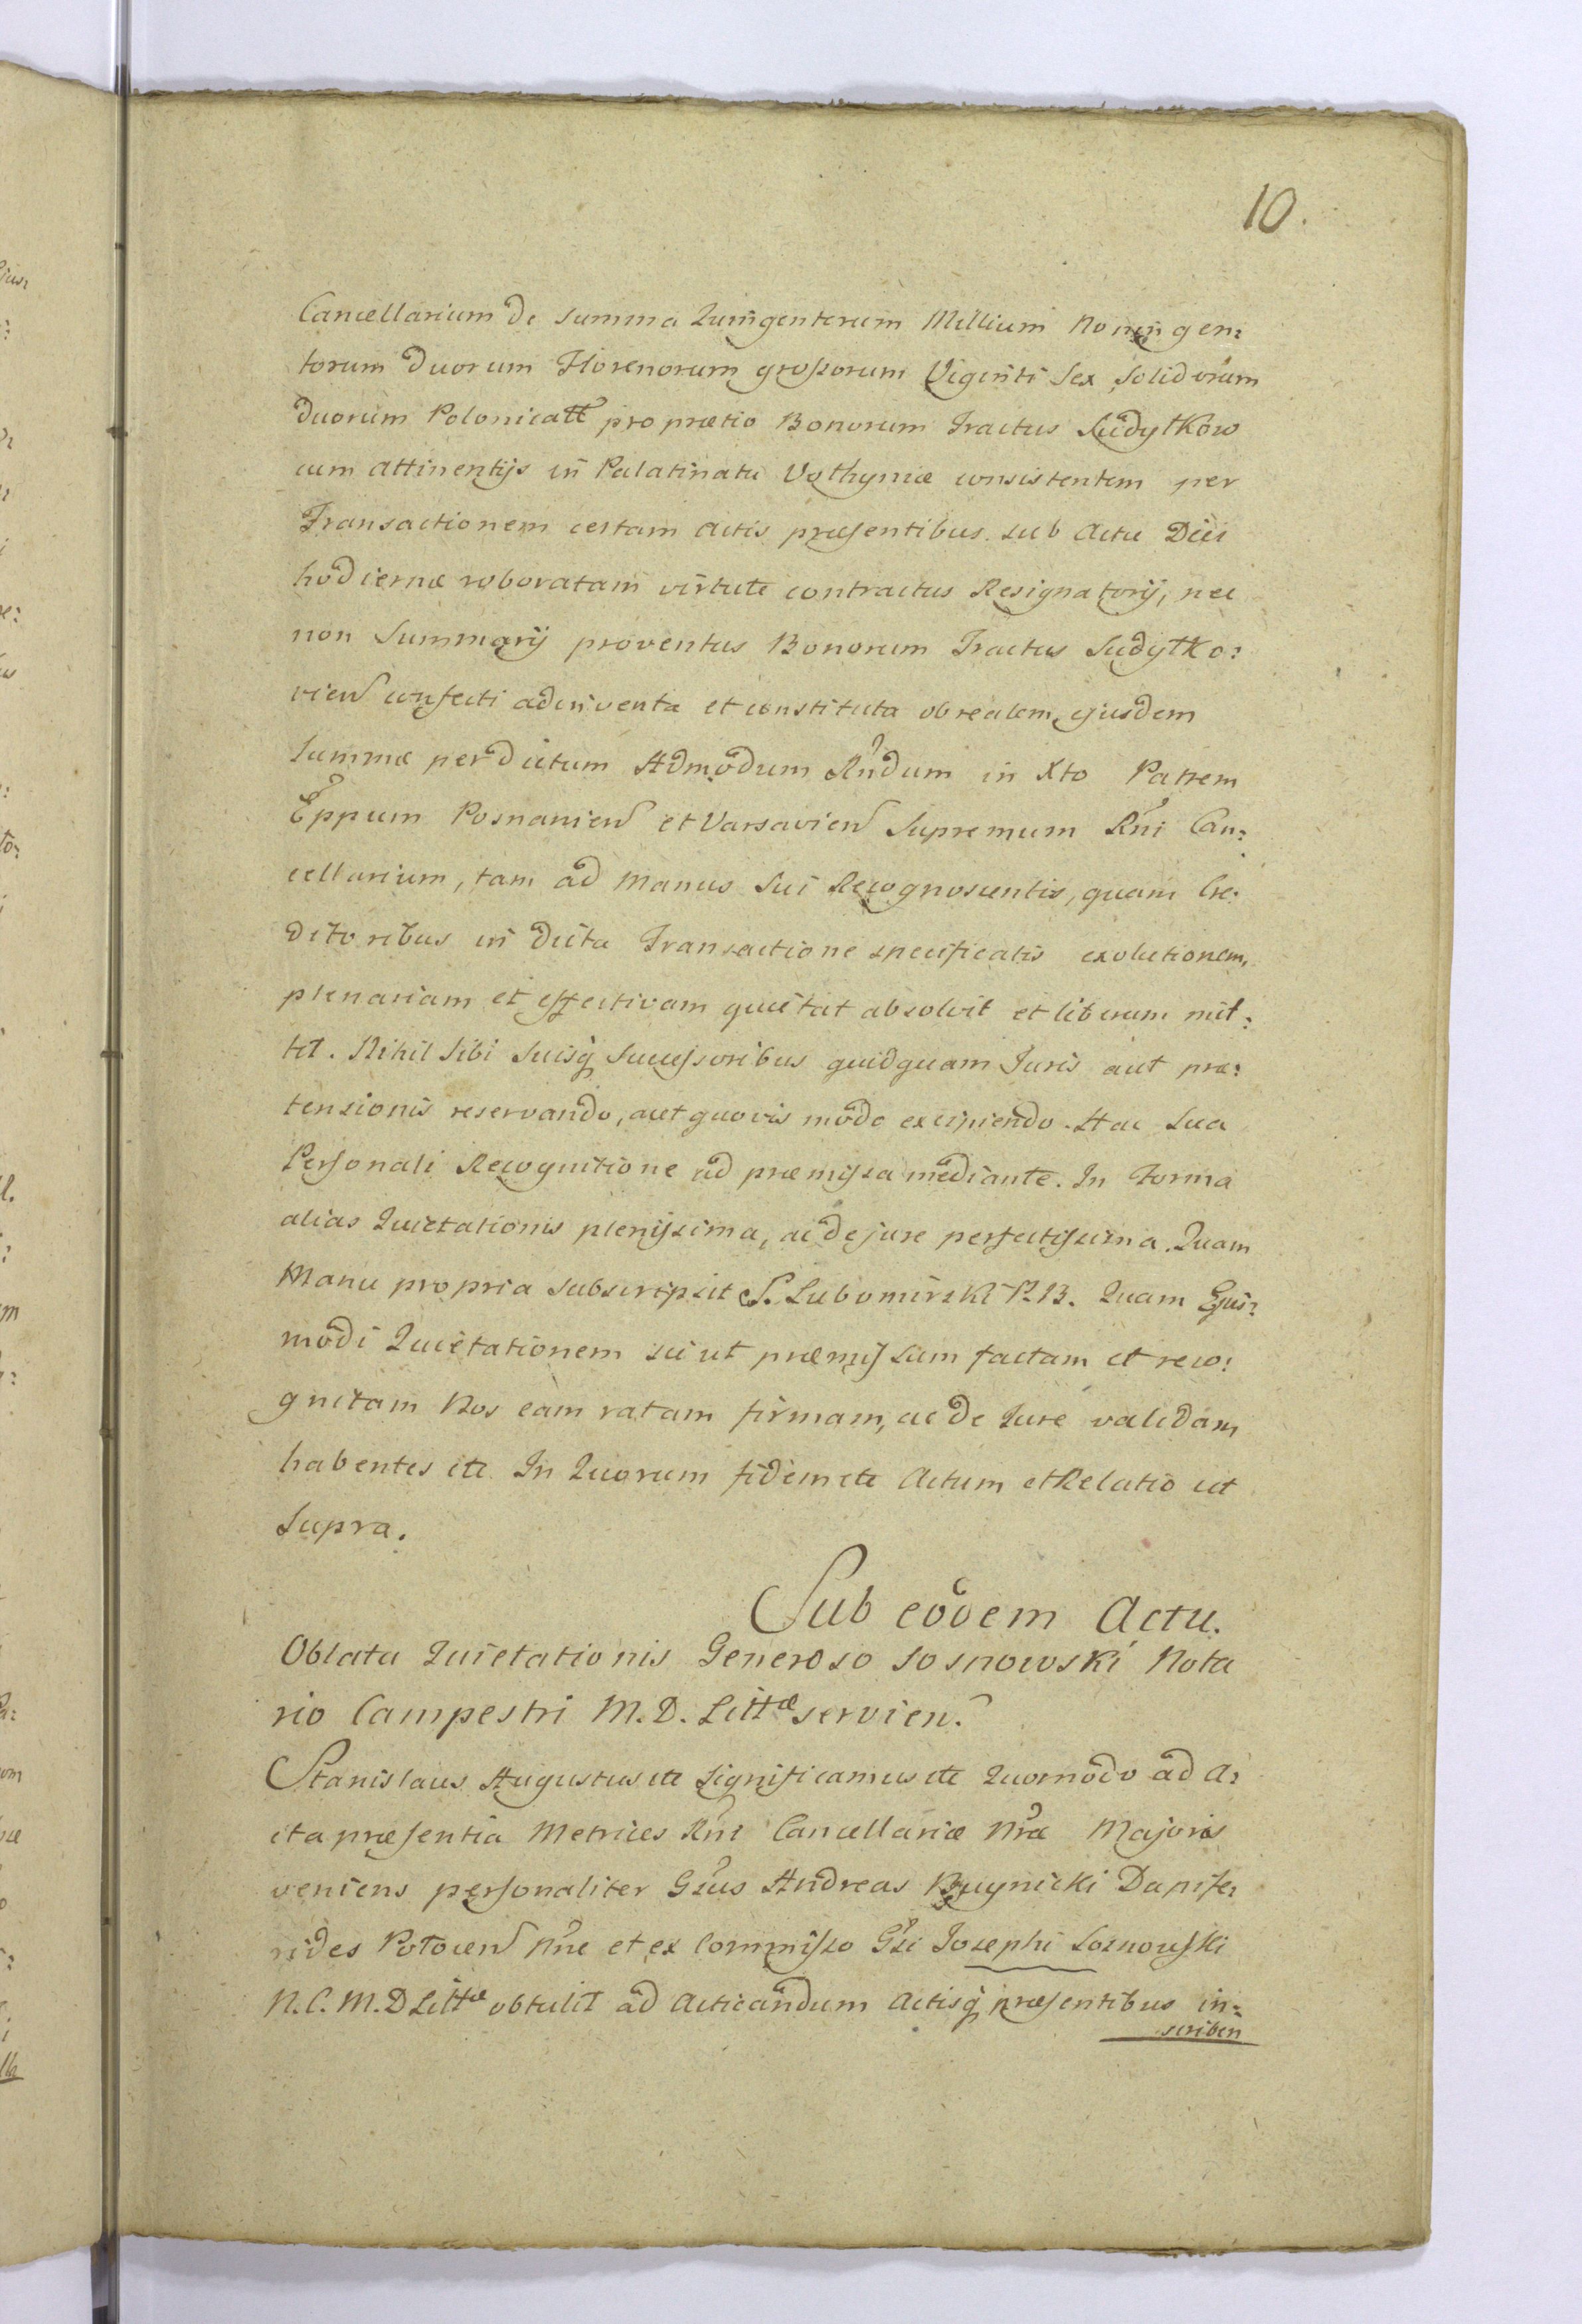 10.
Cancellarium de summa Quingentorum Millium Noningen:
torum duorum Florenorum grossorum Viginti Sex Solidorum
duorum Polonicall pro prætio Bonorum Tractus Ludytków
cum attinentijs in Palatinatu Volhyniæ consistentem per
Transactionem certam actis præsentibus sub Actu Diei
hodiernæ roboratam virtute contractus Resignatorij, nec
non Summarij proventus Bonorum Tractus Sudytko:
vien confecti adinventa et constituta ob realem ejusdem
Summæ per dictum Admodum Rndum in Xto Patrem
Eppum Posnanien et Varsavien Supremum Rni Can:
cellarium, tam ad manus Sui Recognoscentis, quam Cre:
ditoribus in dicta Transactione specificatis exolutionem,
plenariam et effectivam quietat absolvit et liberum mit:
tit. Nihil Sibi Suisq Successoribus quidquam Juris aut præ:
tensionis reservando, aut quovis modo excipiendo. Hac Sua
Personali Recognitione ad præmissa mediante. In Forma
alias Quietationis plenissima, ac de jure perfectissima. Quam
Manu propria subscripsit S. Lubomirski P. B. Quam Ejus:
modi Quietationem sicut præmissum factam et reco:
gnitam Nos eam ratam firmam, ac de Jure validam
habentes etc In Quorum fidem etc Actum et Relatio ut
Supra.
Sub eodem Actu.
Oblata Quietationis Generoso Sosnowski Nota
rio Campestri M. D. Littæ servien.
Stanislaus Augustus etc Significamus etc Quomodo ad A:
cta præsentia Metrices Rni Cancellariæ Nræ Majoris
veniens personaliter Gsus Andreas Buynicki Dapife:
rides Potocen Nne et ex Commisso Gsi Josephi Sosnowski
N. C. M. D Littæ obtulit ad Acticandum Actisq præsentibus in:
scriben